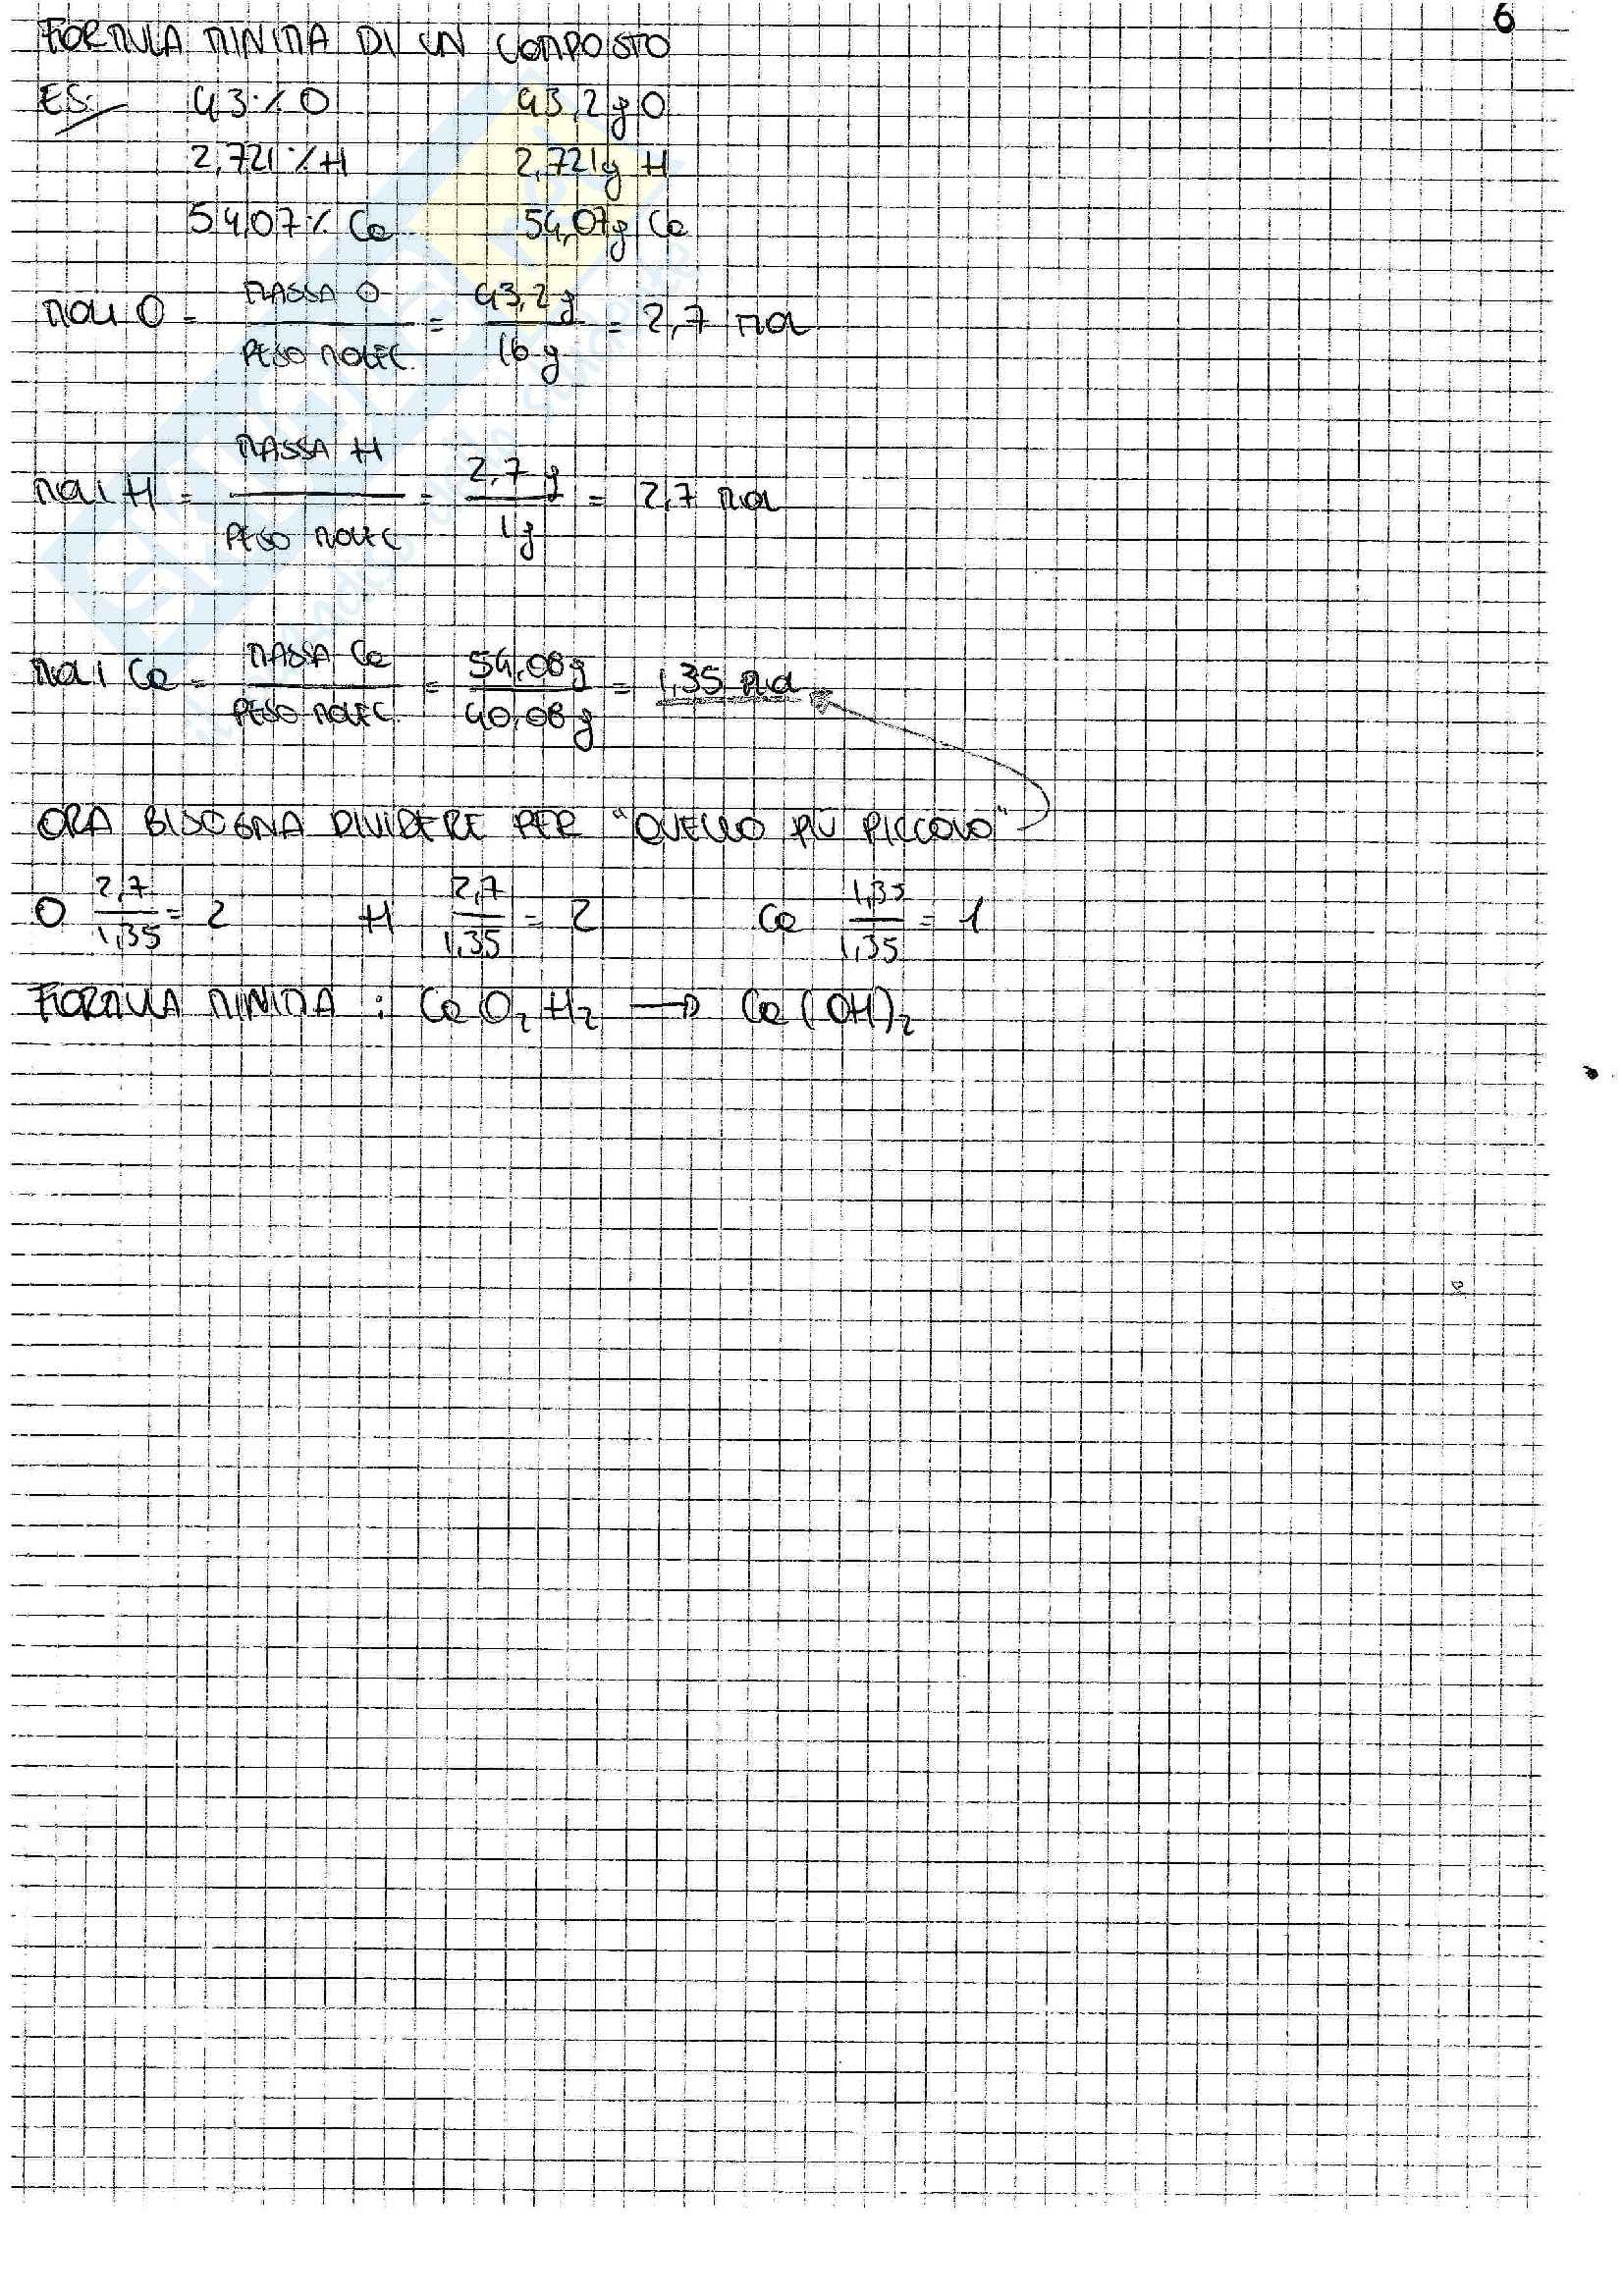 6
FORMULA MINIMA DI UN COMPOSTO
ES: 43 % O 43,2 g O
2,721 % H 2,721 g H
54,07 % Ca 54,07 g Ca
MOLI O = MASSA O / PESO MOLEC. = 43,2 g / 16 g = 2,7 MOL
MOLI H = MASSA H / PESO MOLEC = 2,7 g / 1 g = 2,7 MOL
MOLI Ca = MASSA Ca / PESO MOLEC. = 54,08 g / 40,08 g = 1,35 MOL
ORA BISOGNA DIVIDERE PER "QUELLO PIÙ PICCOLO"
O 2,7 / 1,35 = 2 H 2,7 / 1,35 = 2 Ca 1,35 / 1,35 = 1
FORMULA MINIMA : Ca O₂ H₂ → Ca (OH)₂